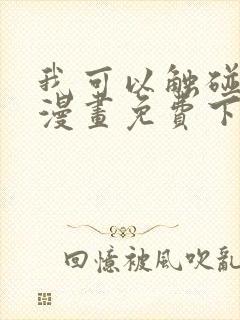 我可以触碰
漫畫免費下
回憶被風吹亂